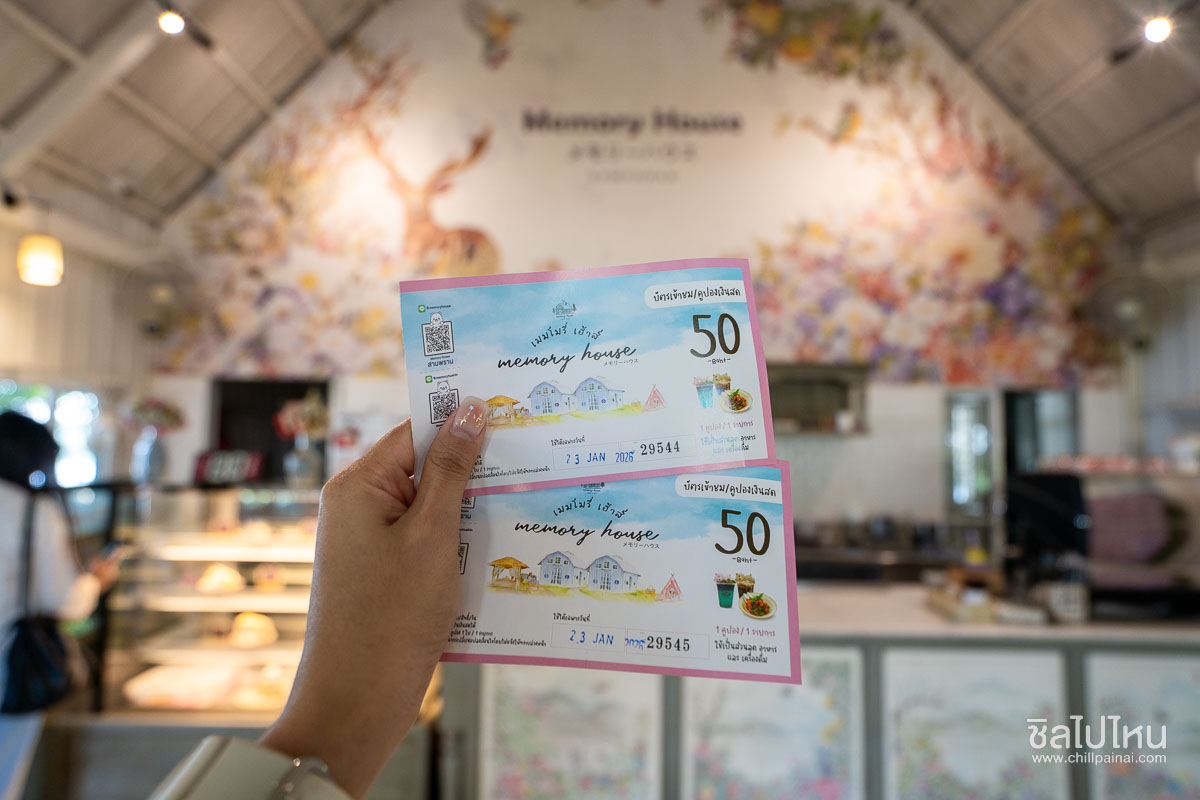 Memory House
メモリーハウス
บัตรเข้าชม/คูปองเงินสด
50
-Baht-
เมมโมรี่ เฮ้าส์
memory house
メモリーハウス
สามพราน
ใช้ได้เฉพาะวันที่
23 JAN 2026
29544
1 คูปอง / 1 รายการ
ใช้เป็นส่วนลด อาหาร
และ เครื่องดื่ม
บัตรเข้าชม/คูปองเงินสด
50
-Baht-
เมมโมรี่ เฮ้าส์
memory house
メモリーハウス
ใช้ได้เฉพาะวันที่
23 JAN 2026
29545
1 คูปอง / 1 รายการ
ใช้เป็นส่วนลด อาหาร
และ เครื่องดื่ม
ชิลไปไหน
www.chillpainai.com